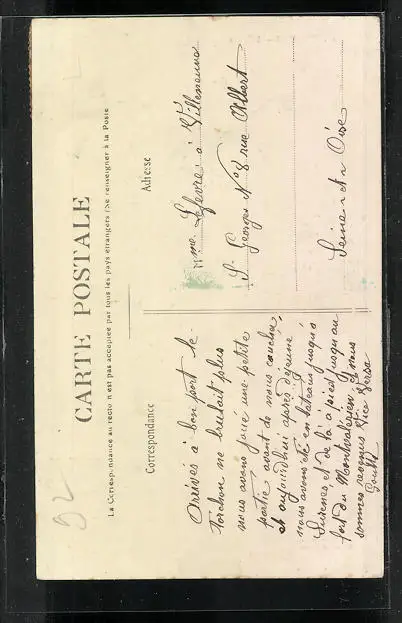 CARTE POSTALE
La Correspondance au recto n'est pas acceptée par tous les pays étrangers (Se renseigner à la Poste
Correspondance
Adresse
92
Arrivés à bon port le
torchon ne brulait plus
nous avons joué une petite
partie avant de nous coucher,
et aujourdhui après déjeuné
nous avons été en bateau jusqu'à
Surenes, et de là à pied jusqu'au
fort du Montvalerien, et nous
sommes revenus Vice Versa
Mme Lefevre à Villeneuve
St Georges No 8 rue Albert
Seine et Oise